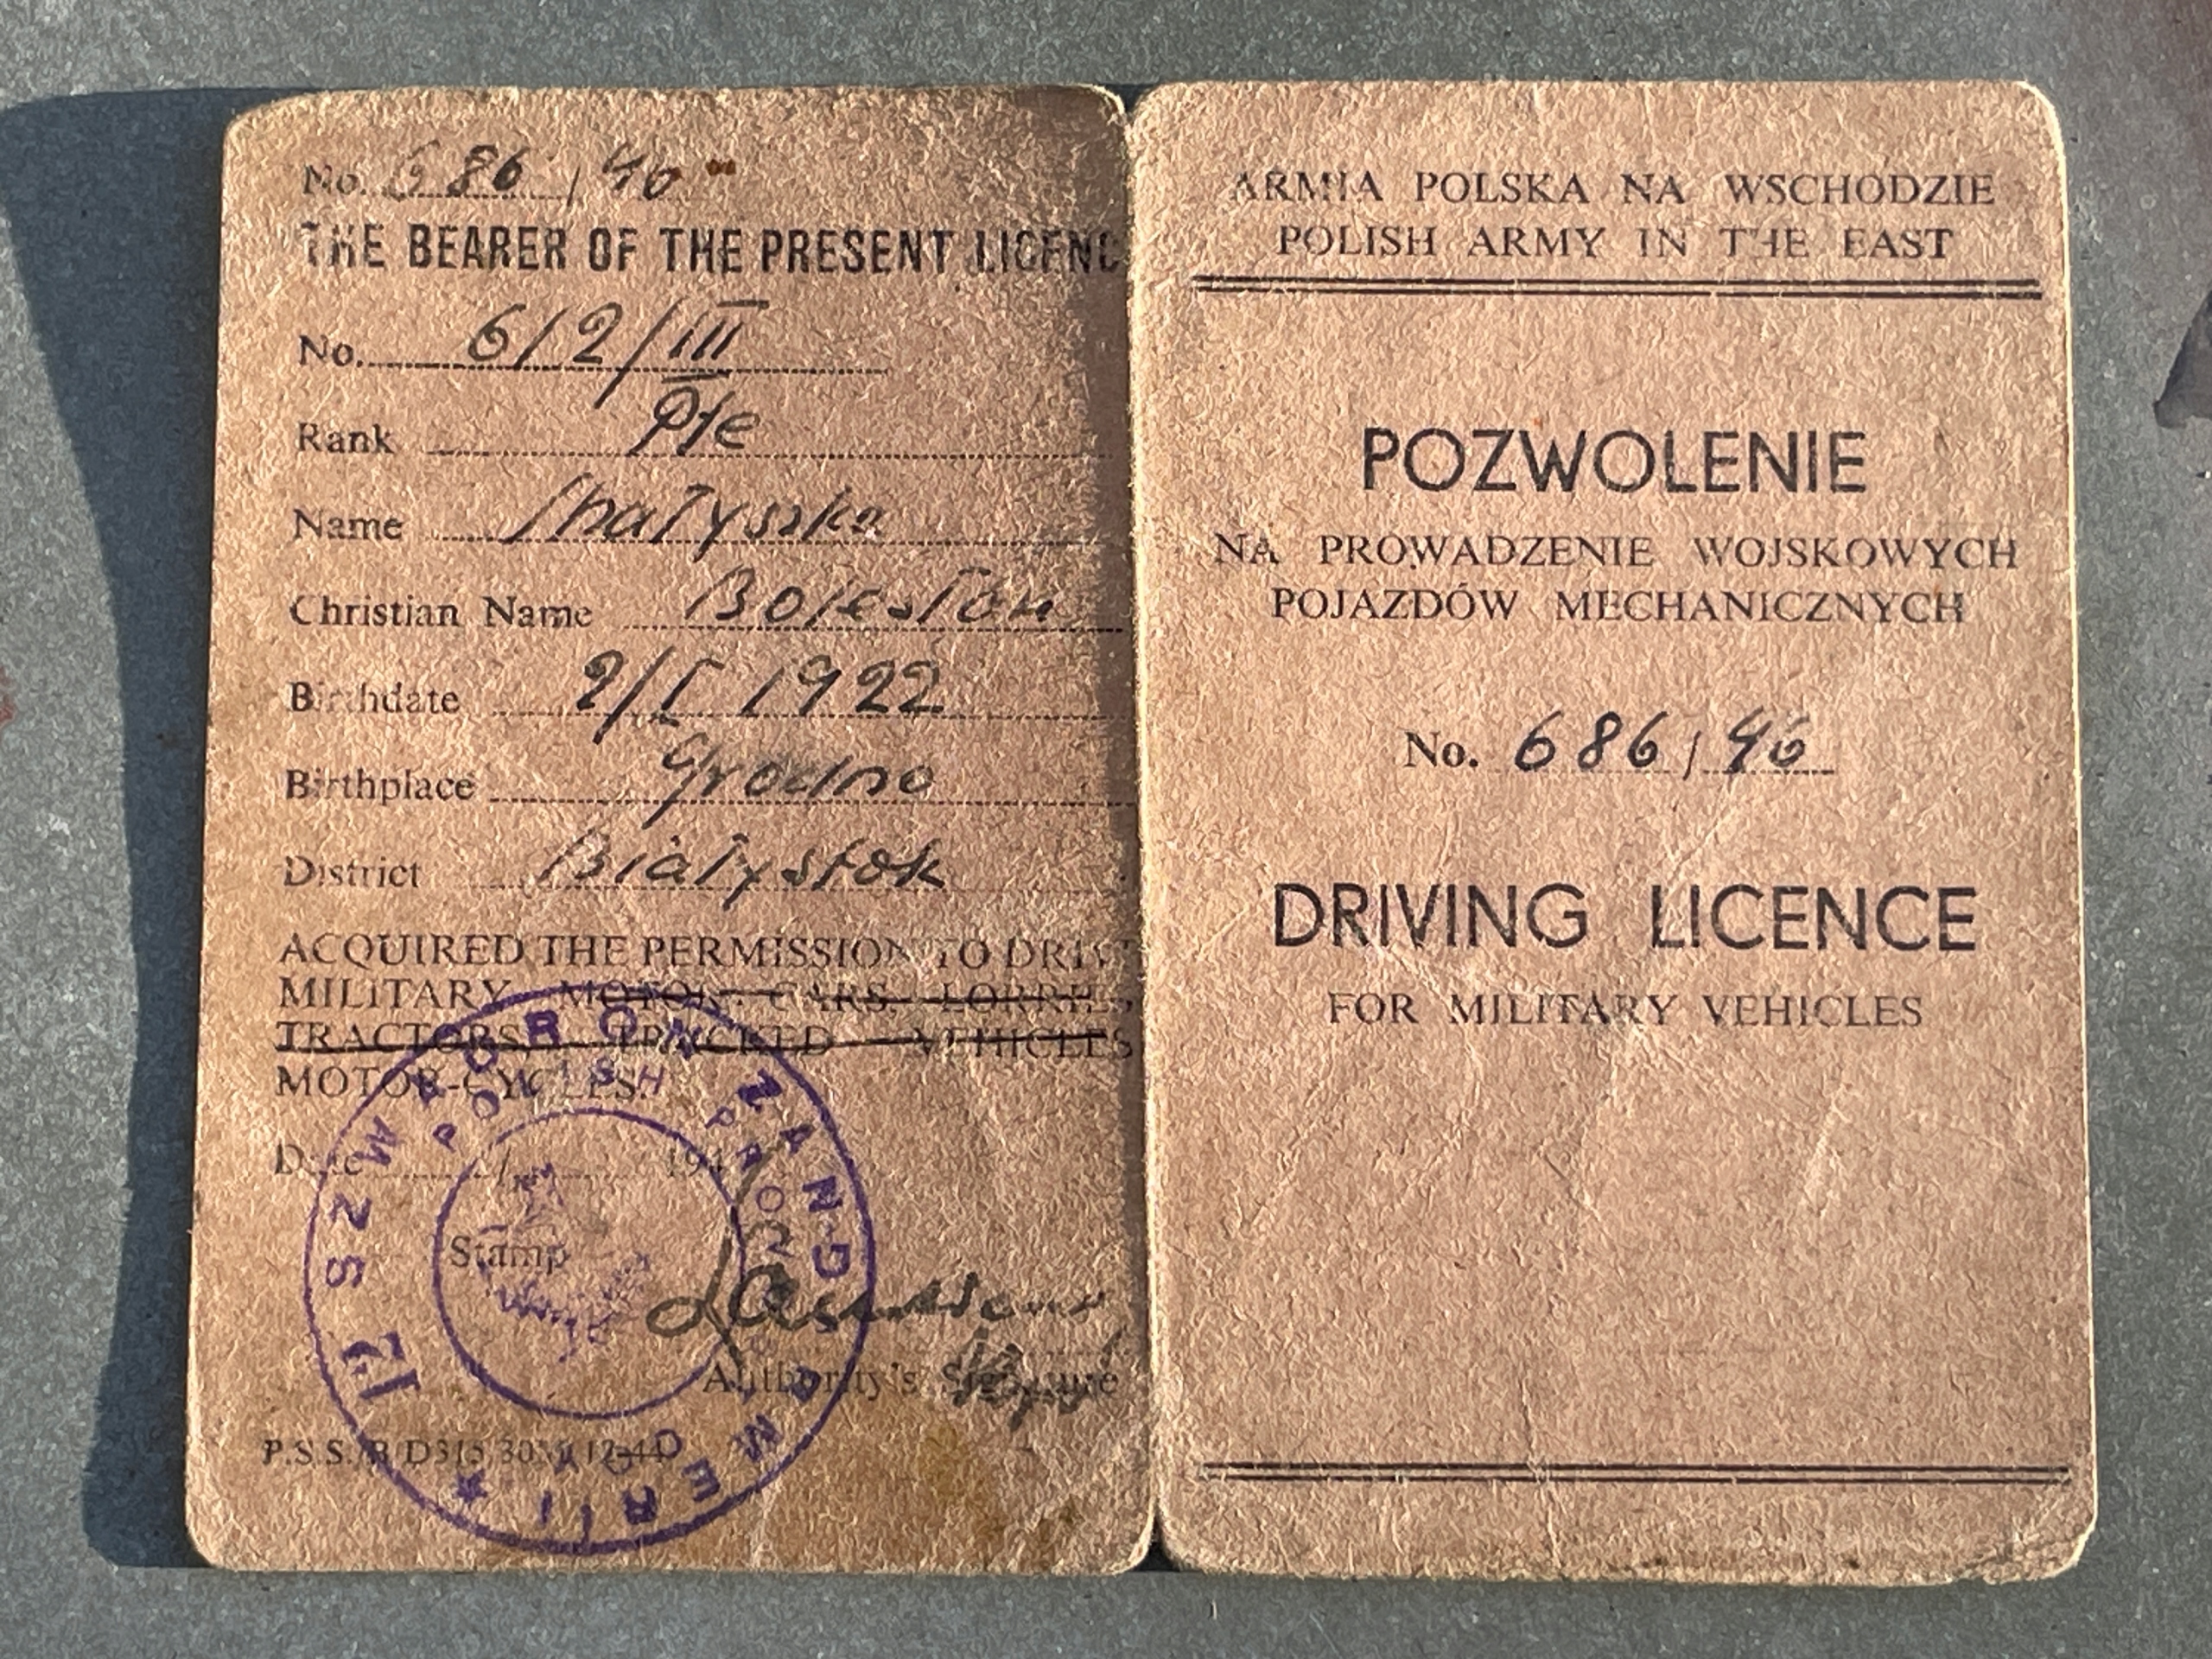 No. 686 / 46
THE BEARER OF THE PRESENT LICENC
No. 612/III
Rank Pte
Name
Christian Name Bolesław
Birthdate 2/I 1922
Birthplace Grodno
District Białystok
ACQUIRED THE PERMISSION TO DRIV
MILITARY MOTOR CARS, LORRIES,
TRACTORS, TRACKED VEHICLES
MOTOR-CYCLES.
Date 194
Stamp
Authority's Signature
P.S.S. D315 30M 12-44
SZWADRON ŻANDARMERII
POLISH PROVOST
ARMIA POLSKA NA WSCHODZIE
POLISH ARMY IN THE EAST
POZWOLENIE
NA PROWADZENIE WOJSKOWYCH
POJAZDÓW MECHANICZNYCH
No. 686 / 46
DRIVING LICENCE
FOR MILITARY VEHICLES